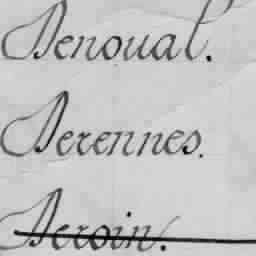 Denoual.
Derennes.
Deroin.